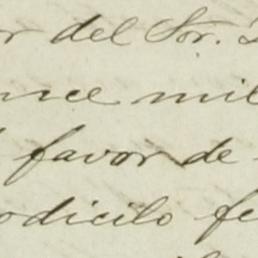 r del Sor.
once mil
favor de
odicilo fe